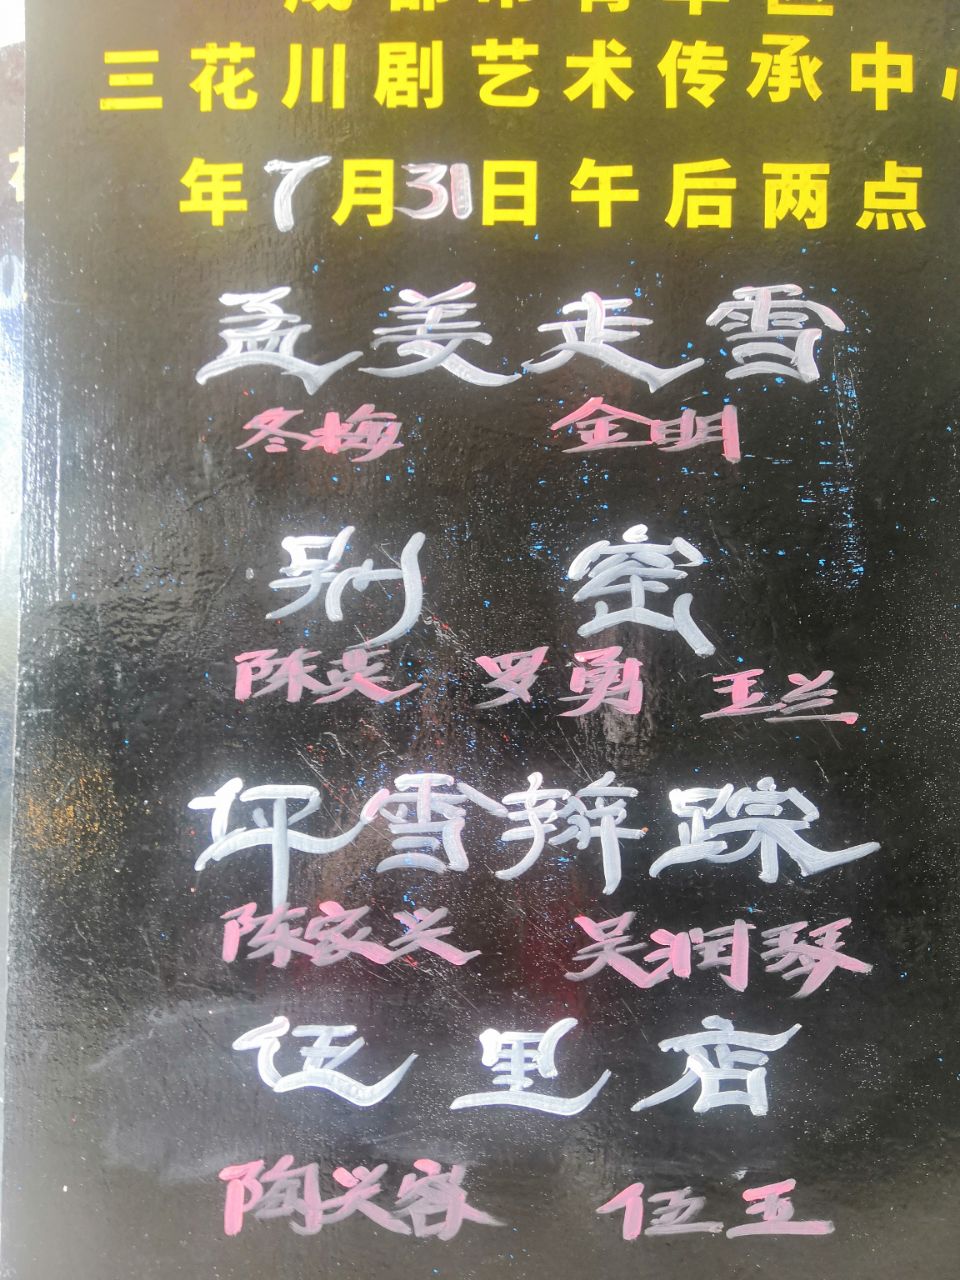 成都市青羊区
三花川剧艺术传承中心
年7月31日午后两点
孟姜走雪
冬梅 金明
别窑
陈英 罗勇 王兰
评雪辨踪
陈家兴 吴润琴
伍里店
陶兴容 伍玉